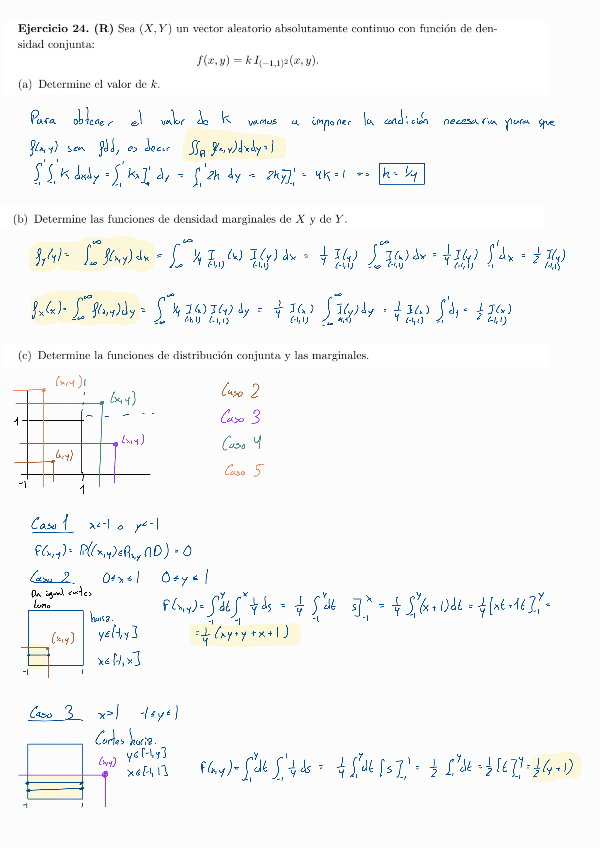 Ejercicio 24. (R) Sea (X, Y) un vector aleatorio absolutamente continuo con función de den-
sidad conjunta:
f(x, y) = k I₍₋₁,₁₎²(x, y).
(a) Determine el valor de k.
Para obtener el valor de k vamos a imponer la condición necesaria para que
f(x,y) sea fdd, es decir ∫∫ᵣ f(x,y)dxdy=1
∫₋₁¹∫₋₁¹ k dxdy = ∫₋₁¹ kx]₋₁¹ dy = ∫₋₁¹ 2k dy = 2ky]₋₁¹ = 4k = 1 => k = 1/4
(b) Determine las funciones de densidad marginales de X y de Y.
f_Y(y) = ∫₋∞^∞ f(x,y) dx = ∫₋∞^∞ 1/4 I₍₋₁,₁₎(x) I₍₋₁,₁₎(y) dx = 1/4 I₍₋₁,₁₎(y) ∫₋∞^∞ I₍₋₁,₁₎(x) dx = 1/4 I₍₋₁,₁₎(y) ∫₋₁¹ dx = 1/2 I₍₋₁,₁₎(y)
f_X(x) = ∫₋∞^∞ f(x,y) dy = ∫₋∞^∞ 1/4 I₍₋₁,₁₎(x) I₍₋₁,₁₎(y) dy = 1/4 I₍₋₁,₁₎(x) ∫₋∞^∞ I₍₋₁,₁₎(y) dy = 1/4 I₍₋₁,₁₎(x) ∫₋₁¹ dy = 1/2 I₍₋₁,₁₎(x)
(c) Determine la funciones de distribución conjunta y las marginales.
(x,y)
(x,y)
1
(x,y)
(x,y)
-1
1
Caso 2
Caso 3
Caso 4
Caso 5
Caso 1 x<-1 o y<-1
F(x,y) = P((x,y)∈R_{x,y} ∩ D) = 0
Caso 2 0≤x≤1 0≤y≤1
Da igual cortes
(x,y)
-1
1
horiz.
y∈[-1,y]
x∈[-1,x]
F(x,y) = ∫₋₁^y dt ∫₋₁^x 1/4 ds = 1/4 ∫₋₁^y dt s]₋₁^x = 1/4 ∫₋₁^y (x+1)dt = 1/4 [xt+1t]₋₁^y =
= 1/4 (xy+y+x+1)
Caso 3 x>1 -1≤y≤1
Cortes horiz.
y∈[-1,y]
x∈[-1,1]
(x,y)
-1
1
F(x,y) = ∫₋₁^y dt ∫₋₁¹ 1/4 ds = 1/4 ∫₋₁^y dt [s]₋₁¹ = 1/2 ∫₋₁^y dt = 1/2 [t]₋₁^y = 1/2 (y+1)